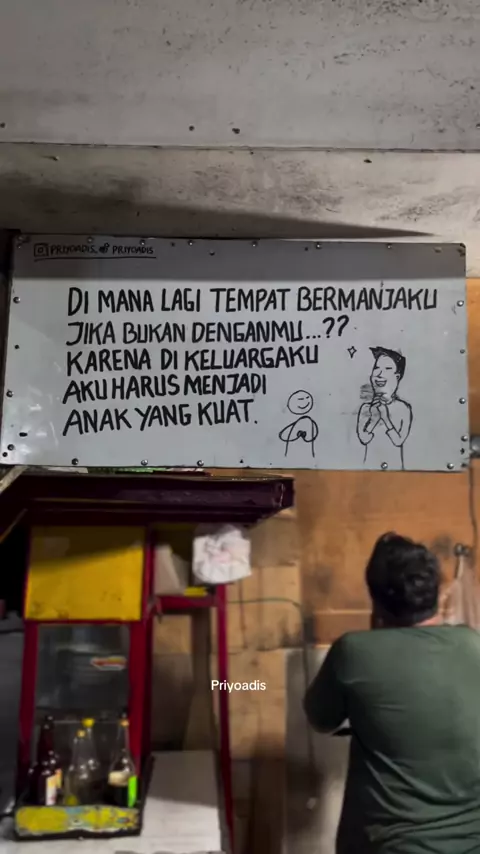 PRIYOADIS. PRIYOADIS
DI MANA LAGI TEMPAT BERMANJAKU
JIKA BUKAN DENGANMU...??
KARENA DI KELUARGAKU
AKU HARUS MENJADI
ANAK YANG KUAT.
Priyoadis